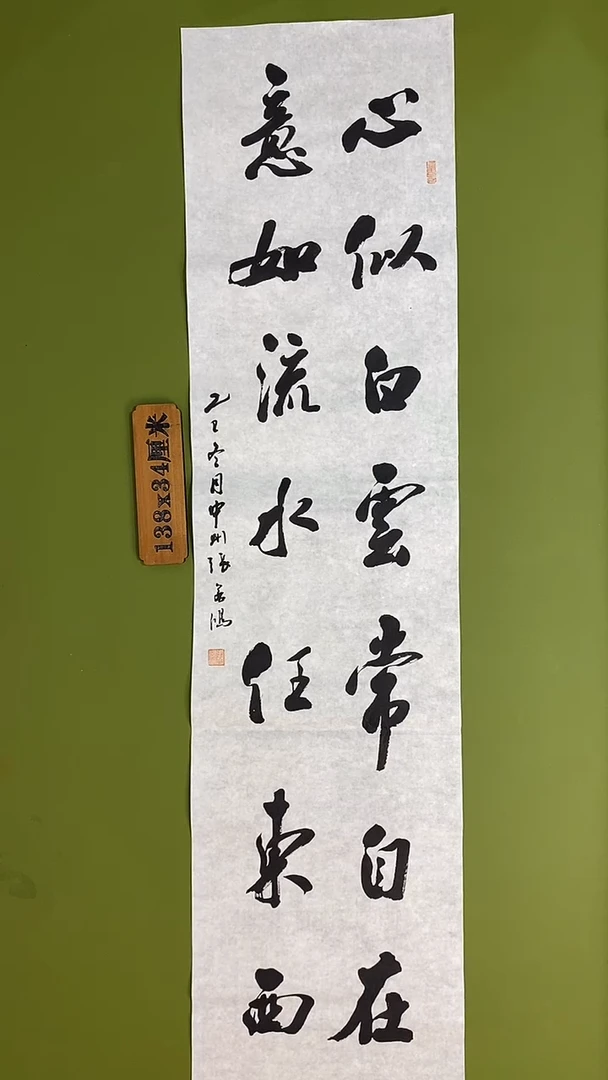 心似白雲常自在
意如流水任東西
乙巳冬月中州張
138x34厘米